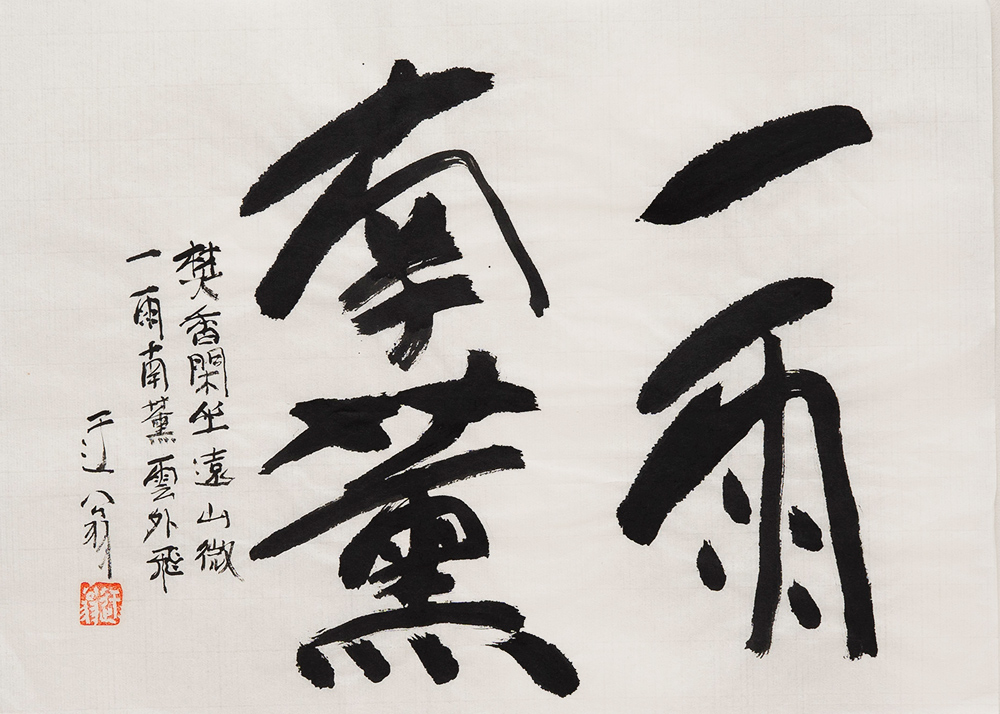 一雨
南薰
焚香閑坐遠山微
一雨南薰雲外飛
迂翁